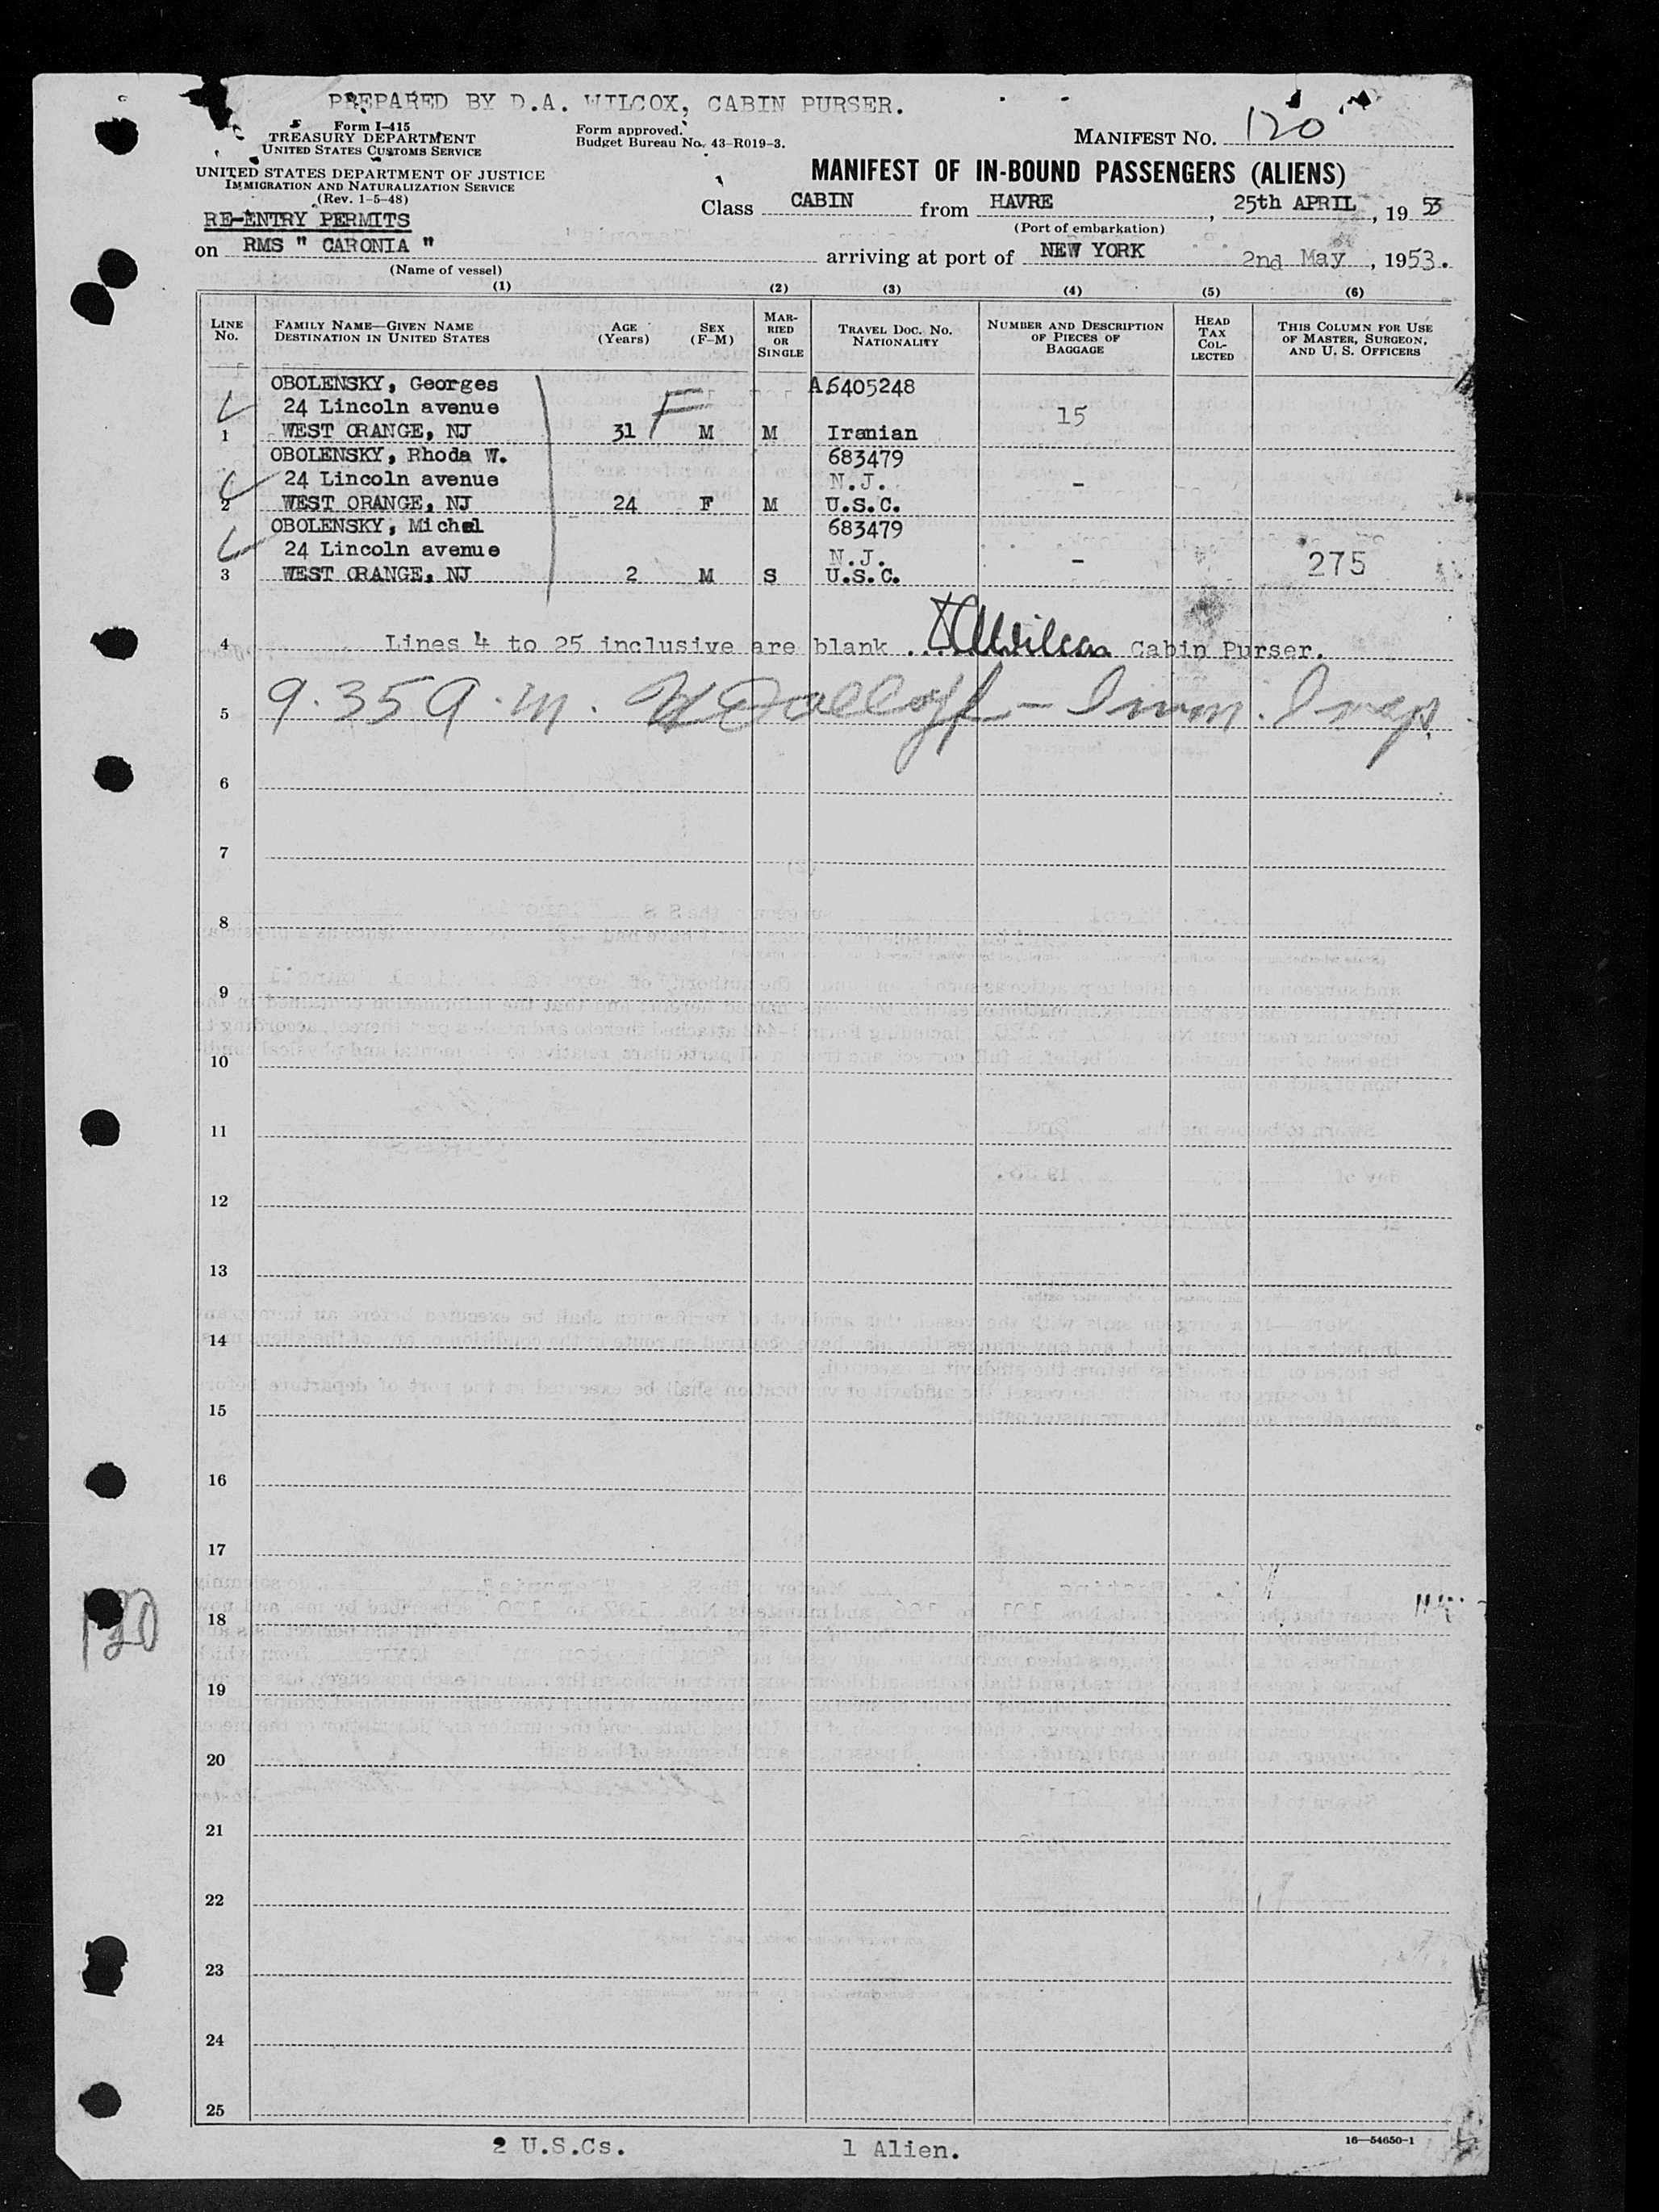 PREPARED BY D.A. WILCOX, CABIN PURSER.
Form I-415
TREASURY DEPARTMENT
UNITED STATES CUSTOMS SERVICE
Form approved.
Budget Bureau No. 43-R019-3.
MANIFEST NO. 120
UNITED STATES DEPARTMENT OF JUSTICE
IMMIGRATION AND NATURALIZATION SERVICE
(Rev. 1-5-48)
MANIFEST OF IN-BOUND PASSENGERS (ALIENS)
RE-ENTRY PERMITS
Class CABIN from HAVRE, 25th APRIL, 19 53
(Port of embarkation)
on RMS " CARONIA " arriving at port of NEW YORK 2nd May, 1953.
(Name of vessel)
(1) (2) (3) (4) (5) (6)
LINE No. FAMILY NAME—GIVEN NAME DESTINATION IN UNITED STATES AGE (Years) SEX (F-M) MARRIED OR SINGLE TRAVEL DOC. NO. NATIONALITY NUMBER AND DESCRIPTION OF PIECES OF BAGGAGE HEAD TAX COLLECTED THIS COLUMN FOR USE OF MASTER, SURGEON, AND U. S. OFFICERS
OBOLENSKY, Georges A.6405248
24 Lincoln avenue F 15
1 WEST ORANGE, NJ 31 M M Iranian
OBOLENSKY, Rhoda W. 683479
24 Lincoln avenue N.J. -
2 WEST ORANGE, NJ 24 F M U.S.C.
OBOLENSKY, Michel 683479
24 Lincoln avenue N.J. - 275
3 WEST ORANGE, NJ 2 M S U.S.C.
4 Lines 4 to 25 inclusive are blank ... Wilcox Cabin Purser.
5 9.35 A.m. - Imm. Insp.
6
7
8
9
10
11
12
13
14
15
16
17
18
120
19
20
21
22
23
24
25
2 U.S.Cs. 1 Alien.
16—54650-1